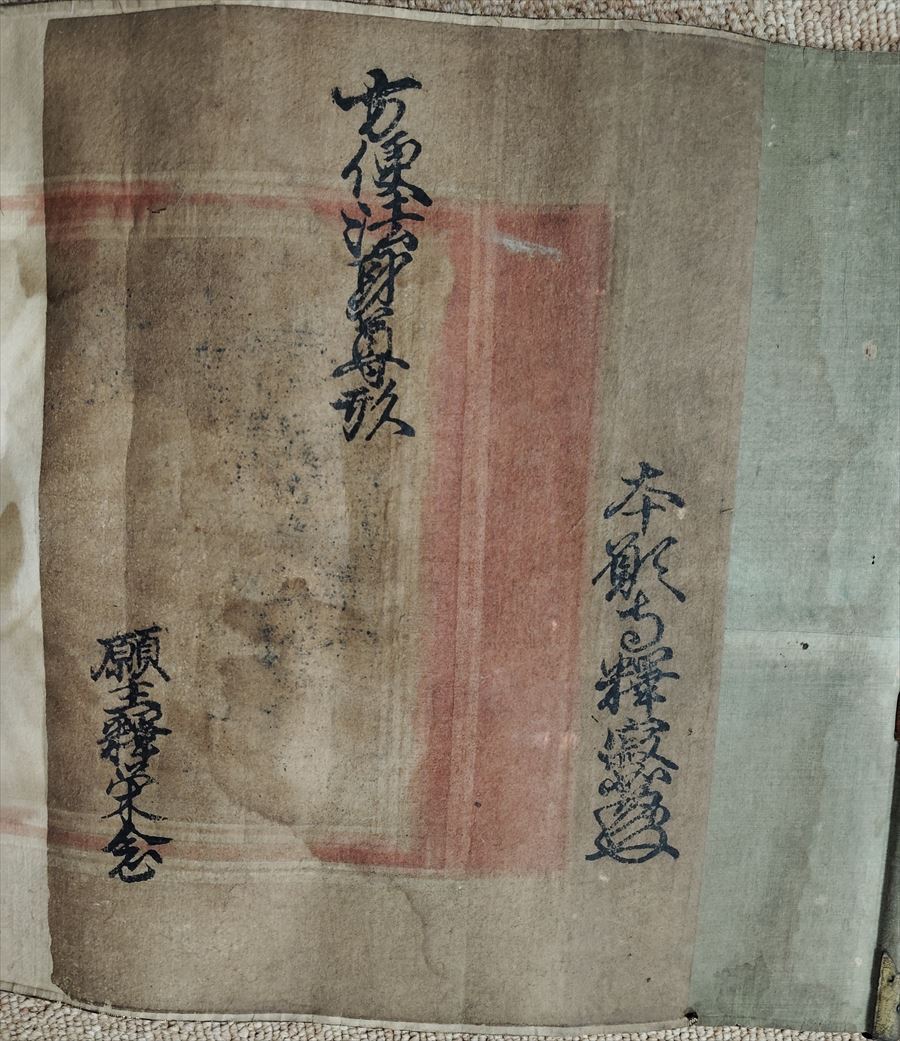 本願寺釋寂
方便法身尊形
願主釋栄念